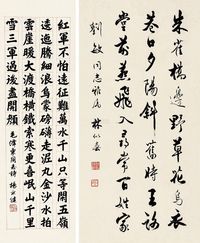 朱雀橋邊野草花烏衣
巷口夕陽斜舊時王謝
堂前燕飛入尋常百姓家
劉敏同志雅屬
紅軍不怕遠征難萬水千山只等閒五嶺
逶迤騰細浪烏蒙磅礴走泥丸金沙水拍
雲崖暖大渡橋橫鐵索寒更喜岷山千里
雪三軍過後盡開顏